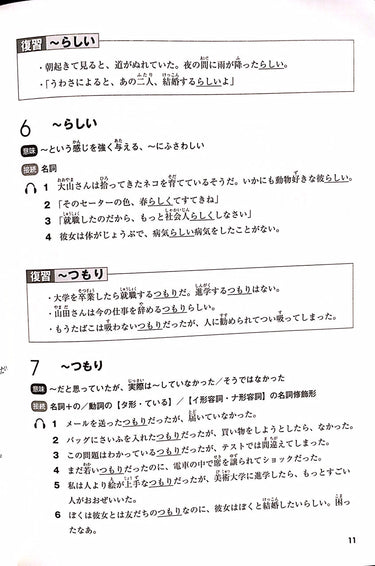 復習 ～らしい
・朝起きて見ると、道がぬれていた。夜の間に雨が降ったらしい。
・「うわさによると、あの二人、結婚するらしいよ」
6 ～らしい
意味 ～という感じを強く与える、～にふさわしい
接続 名詞
1 大山さんは拾ってきたネコを育てているそうだ。いかにも動物好きな彼らしい。
2 「そのセーターの色、春らしくてすてきね」
3 「就職したのだから、もっと社会人らしくしなさい」
4 彼女は体がじょうぶで、病気らしい病気をしたことがない。
復習 ～つもり
・大学を卒業したら就職するつもりだ。進学するつもりはない。
・山田さんは今の仕事を辞めるつもりらしい。
・もうたばこは吸わないつもりだったが、人に勧められてつい吸ってしまった。
7 ～つもり
意味 ～だと思っていたが、実際は～していなかった／そうではなかった
接続 名詞＋の／動詞の【タ形・ている】／【イ形容詞・ナ形容詞】の名詞修飾形
1 メールを送ったつもりだったが、届いていなかった。
2 バッグにさいふを入れたつもりだったが、買い物をしようとしたら、なかった。
3 この問題はわかっているつもりだったが、テストでは間違えてしまった。
4 まだ若いつもりだったのに、電車の中で席を譲られてショックだった。
5 私は人より絵が上手なつもりだったが、美術大学に進学したら、もっとすごい
人がおおぜいいた。
6 ぼくは彼女とは友だちのつもりなのに、彼女はぼくと結婚したいらしい。困っ
たなあ。
11